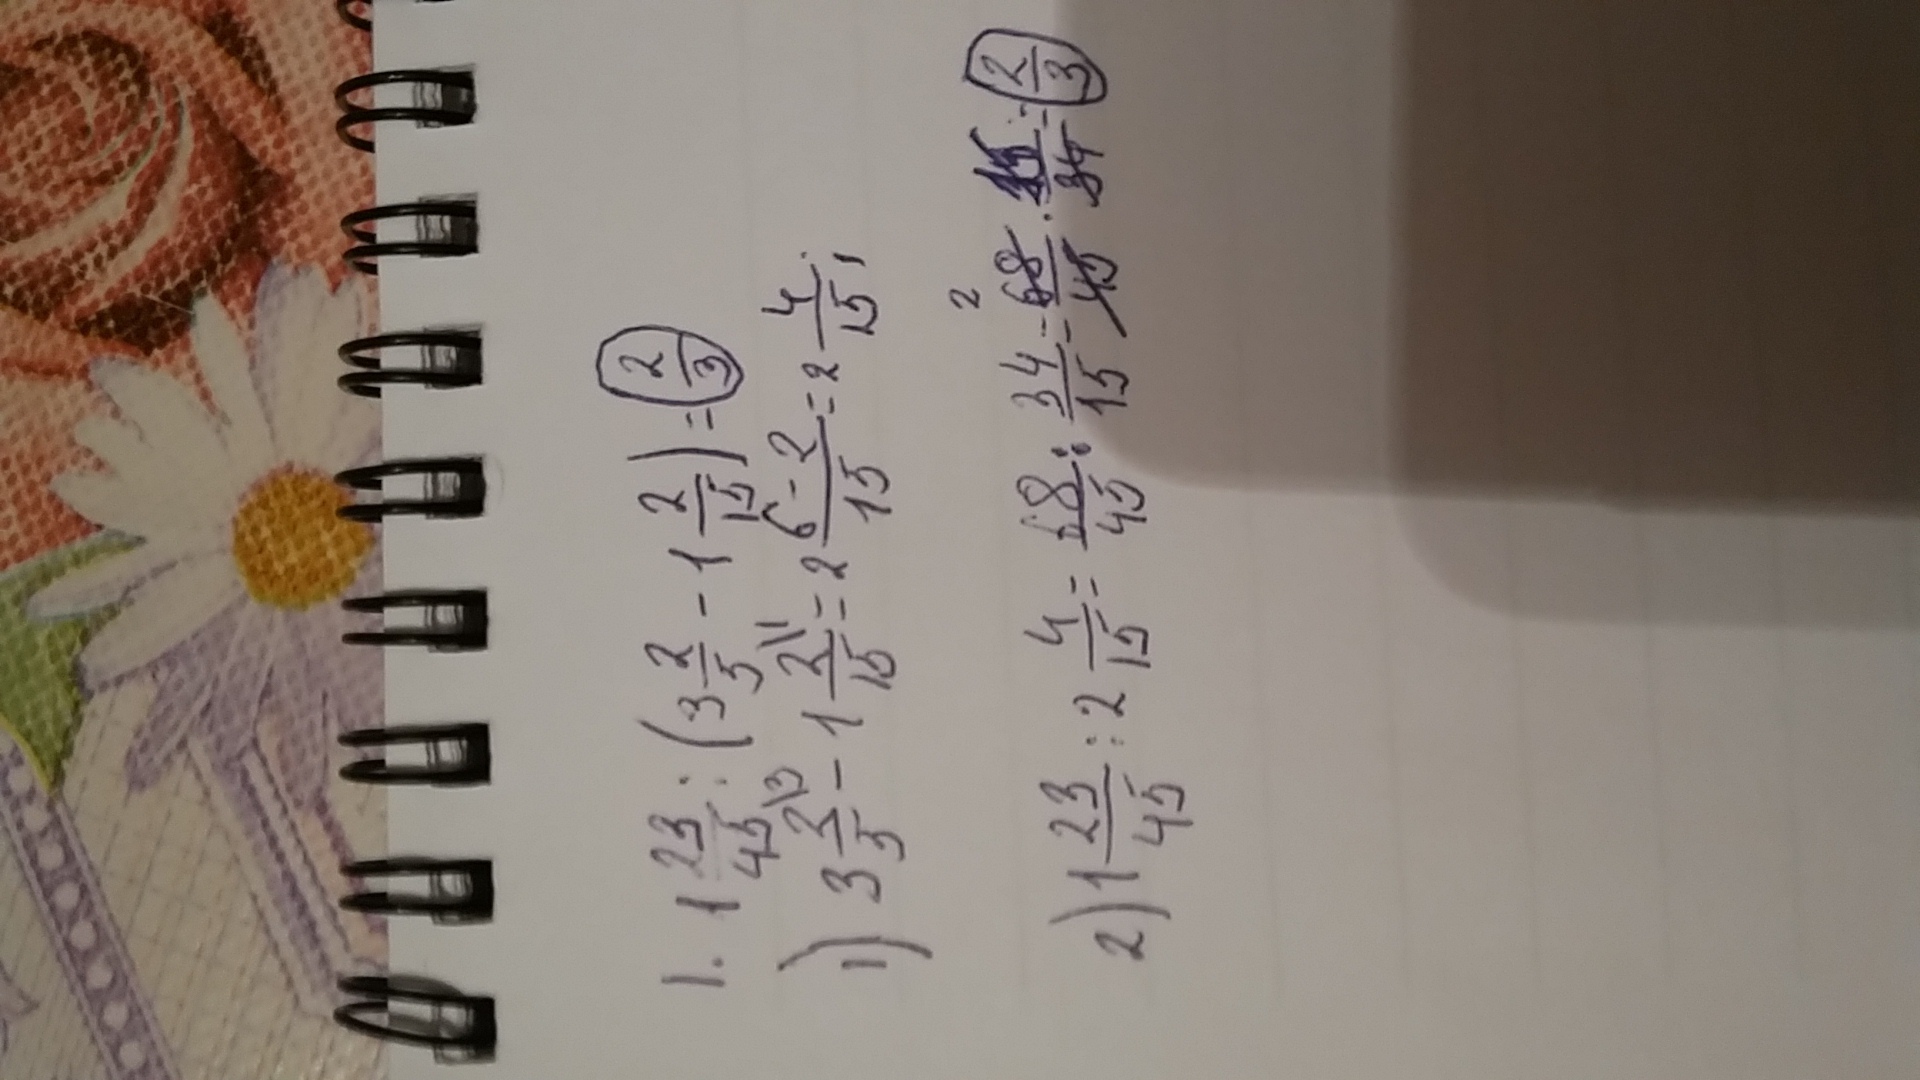 1. 1 23/45 : (3 2/5 - 1 2/15) = 2/3
1) 3 2/5 \3 - 1 2/15 \1 = 2 6-2/15 = 2 4/15;
2) 1 23/45 : 2 4/15 = 68/45 : 34/15 = 68/45 · 15/34 = 2/3
2